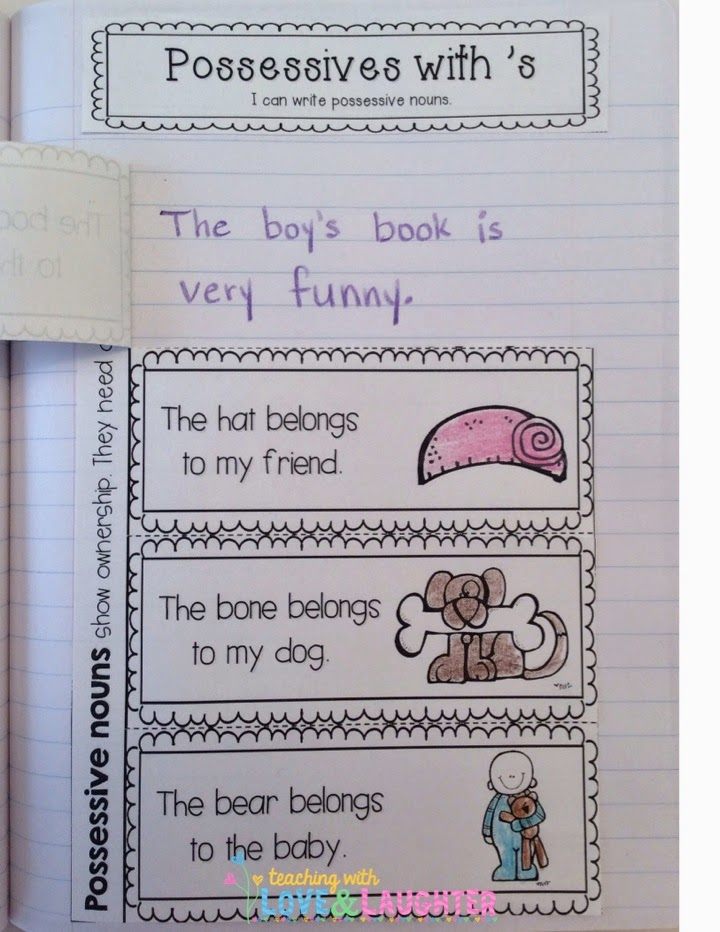 Possessives with 's
I can write possessive nouns.
The boy's book is
very funny.
The hat belongs
to my friend.
The bone belongs
to my dog.
The bear belongs
to the baby.
Possessive nouns show ownership. They need
teaching with
LOVE&LAUGHTER